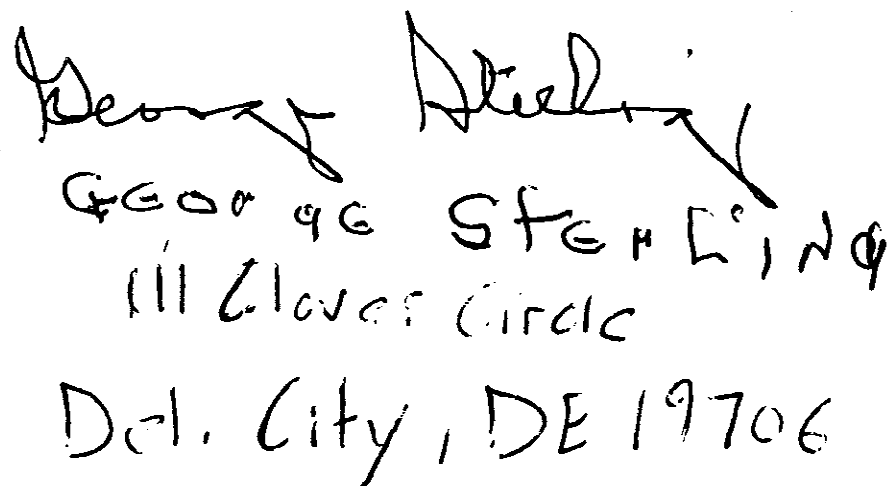 George Sterling
GEORGE STERLING
111 Clover Circle
Del. City, DE 19706